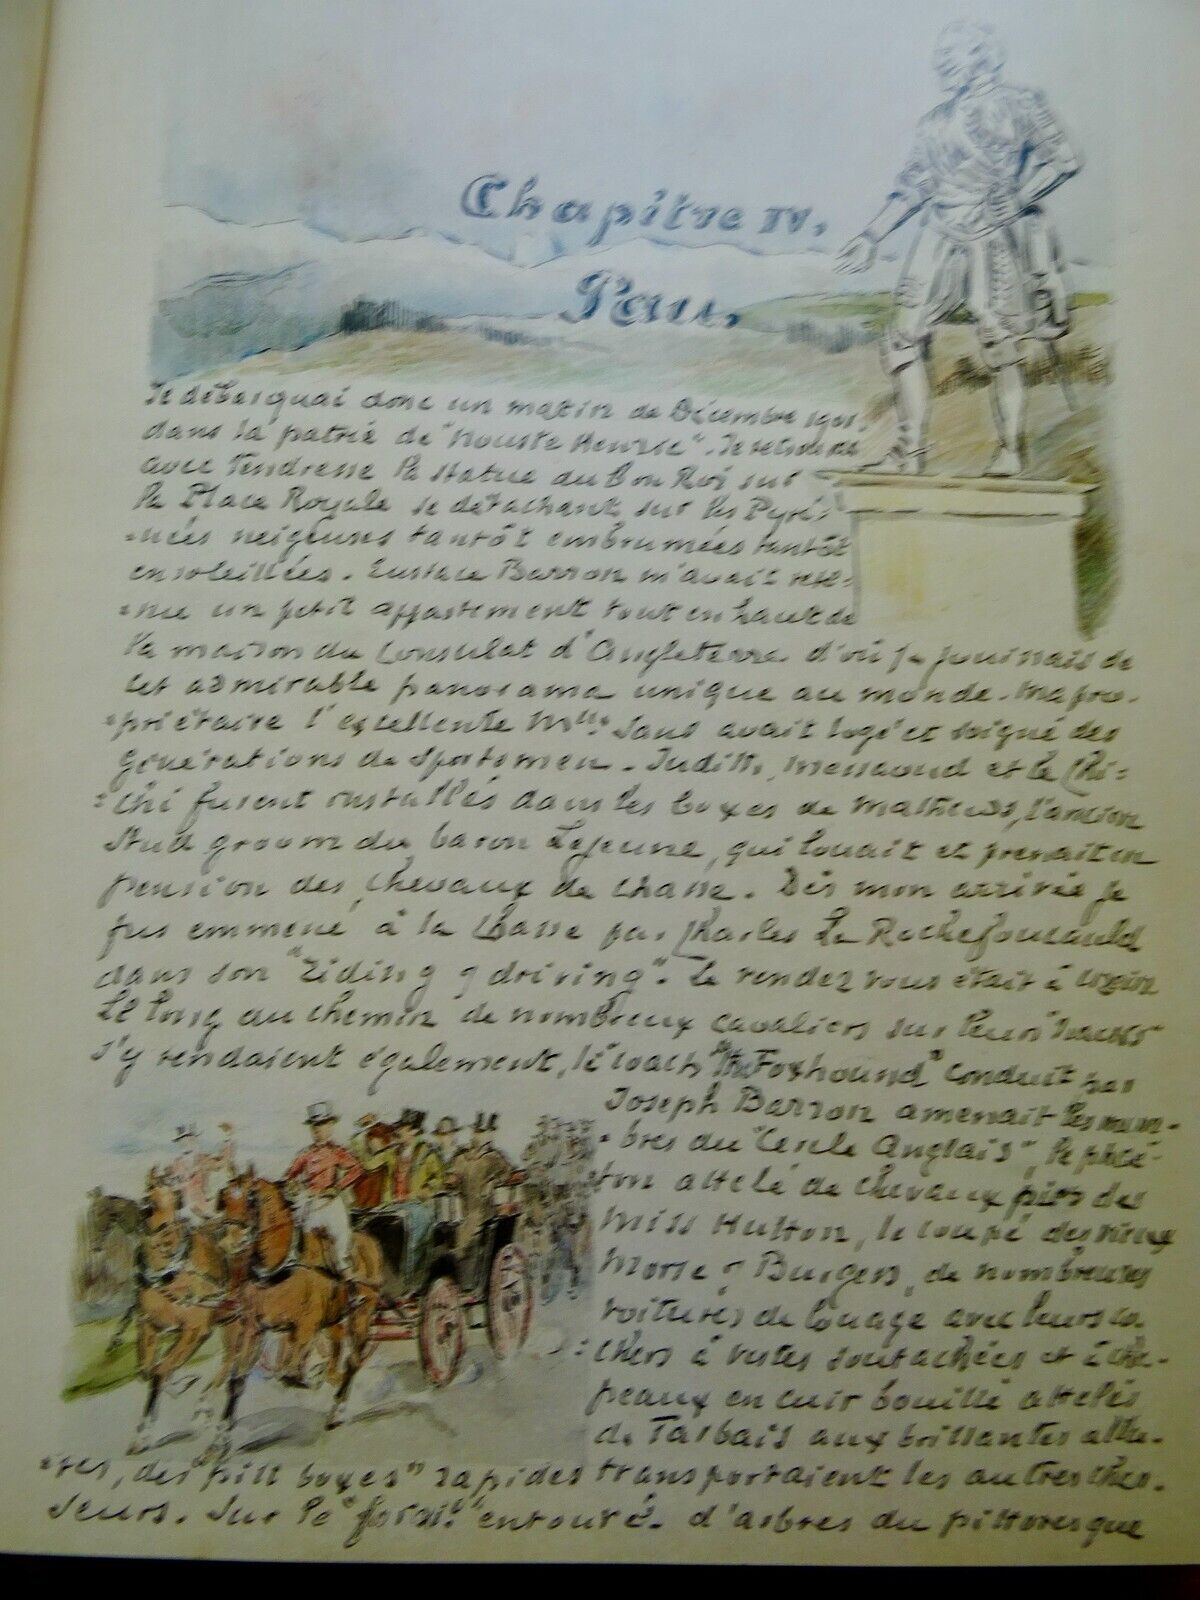 Chapitre IV.
Pau.
Je débarquai donc un matin de Décembre 1901.
dans la patrie de "Nouste Henric". Je
avec tendresse la statue du Bon Roi sur
la Place Royale se détachant sur les Pyré=
=nées neigeuses tantôt embrumées tantôt
ensoleillées. Eustace Barron m'avait rete=
=nu un petit appartement tout en haut de
la maison du Consulat d'Angleterre d'où je jouissais de
cet admirable panorama unique au monde. Ma pro=
=priétaire l'excellente Mlle Sans avait logé et soigné des
générations de Sportsmen. Judith, Messaoud et le Chi=
=chi furent installés dans les boxes de Mathews, l'ancien
Stud groom du baron Lejeune, qui louait et prenait en
pension des chevaux de chasse. Dès mon arrivée je
fus emmené à la chasse par Charles La Rochefoucauld
dans son "riding & driving". Le rendez vous était à Uzein
Le long du chemin de nombreux cavaliers sur leurs "hacks"
s'y rendaient également, le coach "the Foxhound" conduit par
Joseph Barron amenait les mem=
=bres du "Cercle Anglais", le phaé=
ton attelé de chevaux pies des
Miss Hutton, le coupé des vieux
Morse & Burgess, de nombreuses
voitures de louage avec leurs co=
=chers à vestes soutachées et à cha=
peaux en cuir bouilli attelés
de Tarbais aux brillantes allu=
=res, des "pill boxes" rapides transportaient les autres chas=
seurs. Sur le entouré d'arbres du pittoresque